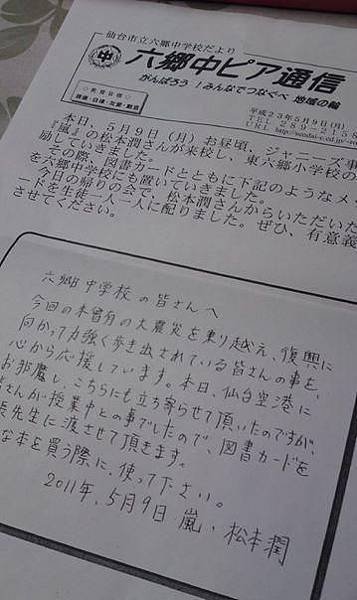 仙台市立六郷中学校だより
六郷中ピア通信
がんばろう!みんなでつなぐべ 地域の輪
中
平成23年5月9日(月)
本日、5月9日(月)お昼頃、ジャニーズ事
『嵐』の松本潤さんが来校し、東六郷小学校の
励していきました。
その際、図書カードとともに下記のようなメ
を六郷中学校にも置いていきました。
今日の帰りの会で、松本潤さんからいただいた
ードを生徒一人一人に配りました。ぜひ、有意義
させてください。
六郷中学校の皆さんへ
今回の未曽有の大震災を乗り越え、復興に
向かって力強く歩き出されている皆さんの事を、
心から応援しています。本日、仙台空港に
お邪魔し、こちらにも立ち寄らせて頂いたのですが、
さんが授業中との事でしたので、図書カードを
長先生に渡させて頂きます。
な本を買う際に、使って下さい。
2011年、5月9日 嵐・松本潤